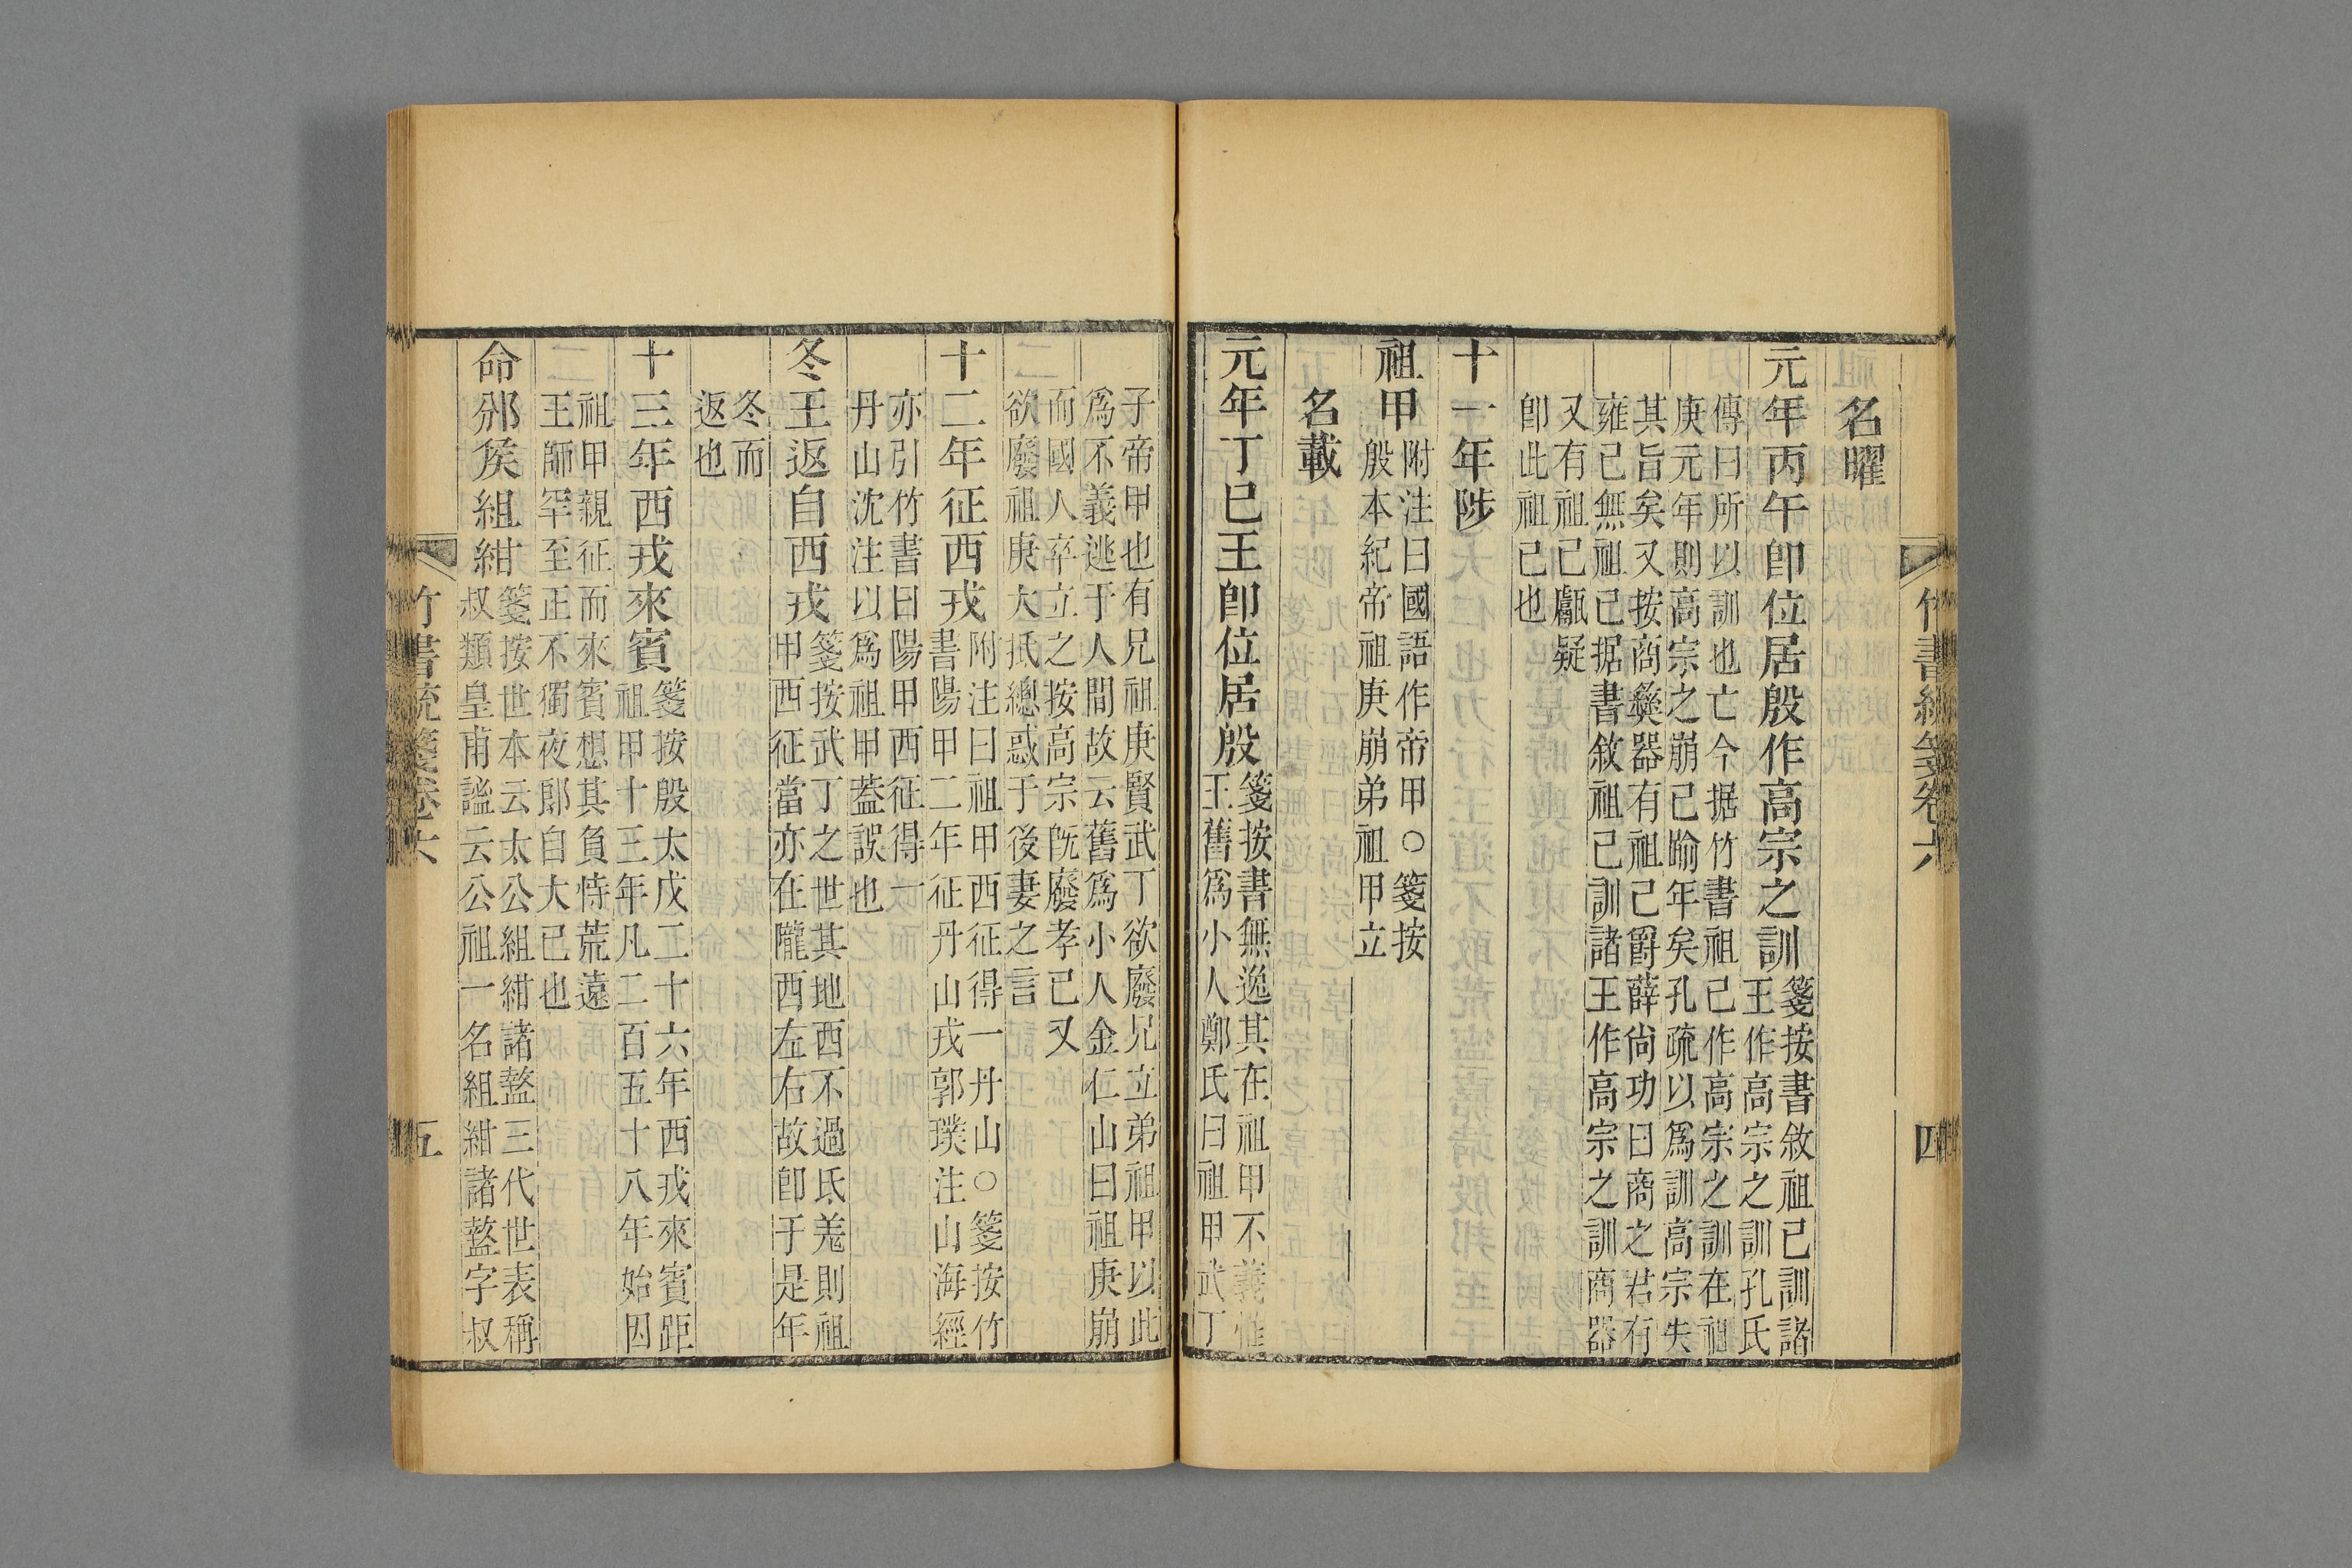 名曜
元年丙午卽位居殷作高宗之訓
箋按書敘祖己訓諸
王作高宗之訓孔氏
傳曰所以訓也亡今据竹書祖己作高宗之訓在祖
庚元年則高宗之崩已踰年矣孔疏以爲訓高宗失
其旨矣又按商彝器有祖己爵薛尙功曰商之君有
雍己無祖己据書敘祖己訓諸王作高宗之訓商器
又有祖己甗疑
卽此祖己也
十一年陟
祖甲
附注曰國語作帝甲○箋按
殷本紀帝祖庚崩弟祖甲立
名載
元年丁巳王卽位居殷
箋按書無逸其在祖甲不義惟
王舊爲小人鄭氏曰祖甲武丁
竹書統箋卷六
四
子帝甲也有兄祖庚賢武丁欲廢兄立弟祖甲以此
爲不義逃于人間故云舊爲小人金仁山曰祖庚崩
而國人卒立之按高宗旣廢孝己又
欲廢祖庚大抵總惑于後妻之言
十二年征西戎
附注曰祖甲西征得一丹山○箋按竹
書陽甲二年征丹山戎郭璞注山海經
亦引竹書曰陽甲西征得一
丹山沈注以爲祖甲蓋誤也
冬王返自西戎
箋按武丁之世其地西不過氐羌則祖
甲西征當亦在隴西左右故卽于是年
冬而
返也
十三年西戎來賓
箋按殷太戊二十六年西戎來賓距
祖甲十三年凡二百五十八年始因
祖甲親征而來賓想其負恃荒遠
王師罕至正不獨夜郎自大已也
命邠侯組紺
箋按世本云太公組紺諸盩三代世表稱
叔類皇甫謐云公祖一名組紺諸盩字叔
竹書統箋卷六
五